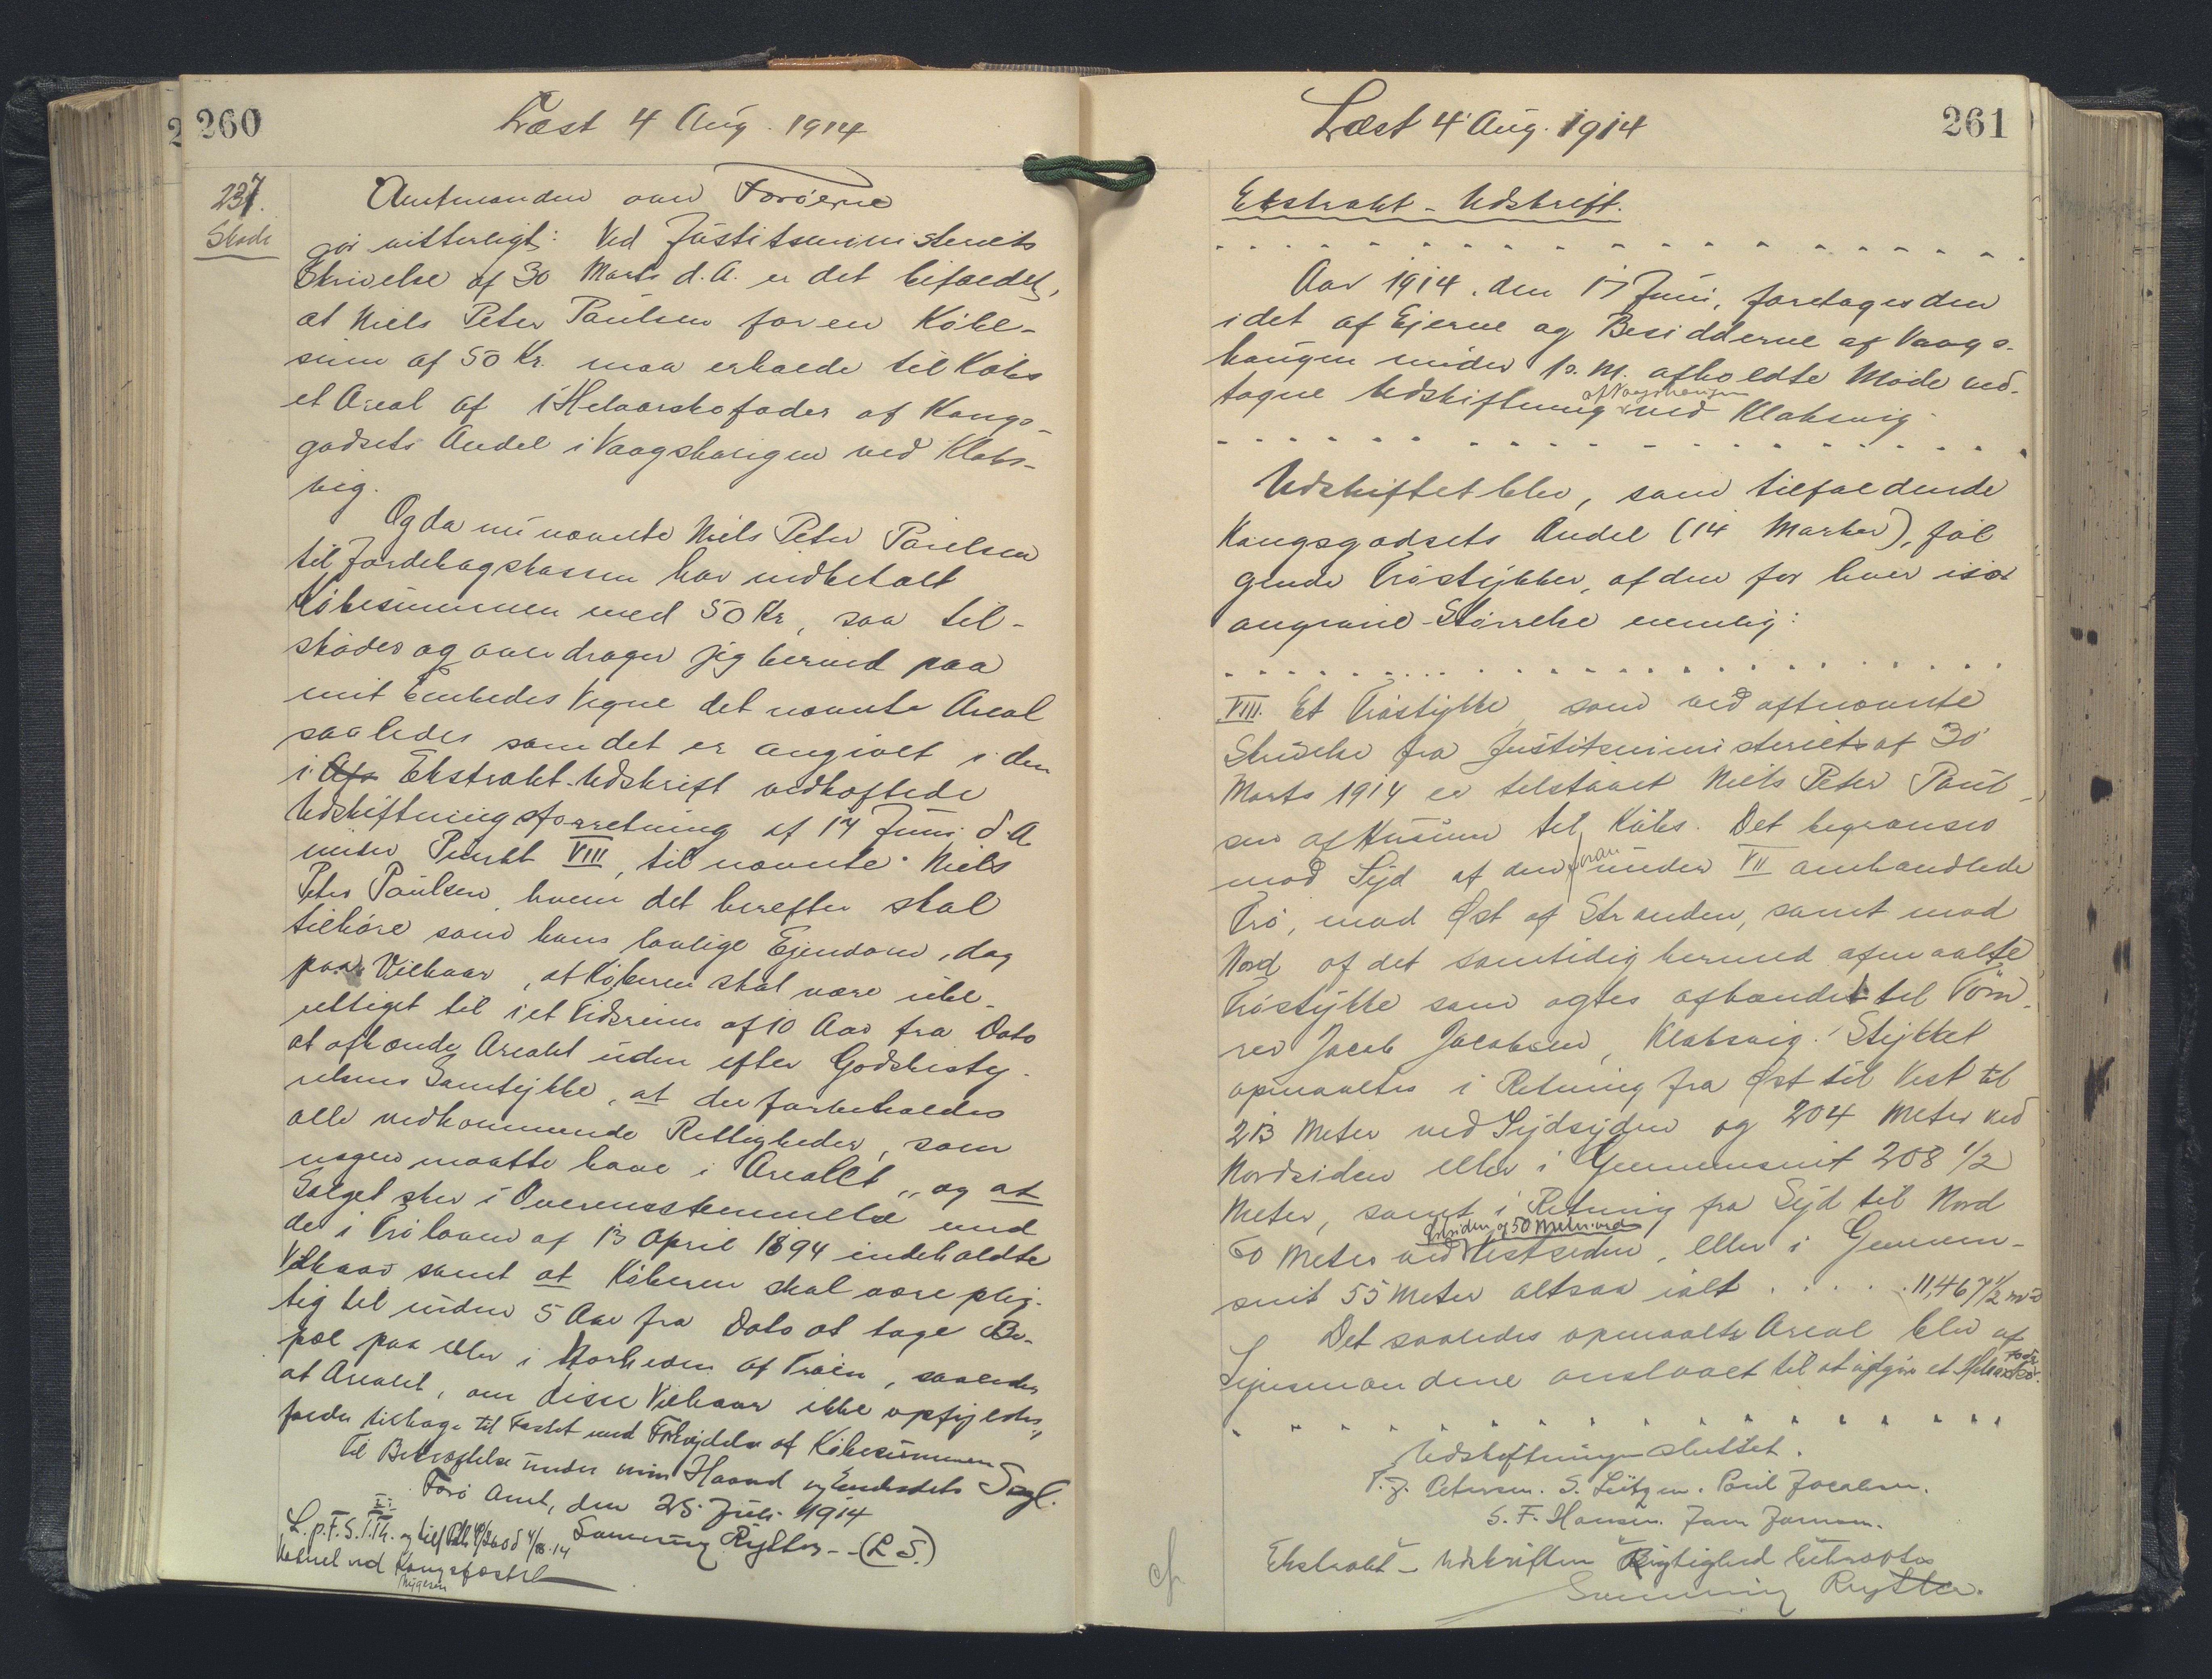 260
Læst 4 Aug. 1914
237.
Skøde
Amtmanden over Færøerne
gør vitterligt: Ved Justitsministeriets
Skrivelse af 30 Marts d.A. er det bifaldet,
at Niels Peter Poulsen for en Købe-
sum af 50 Kr. maa erholde til Købs
et Areal af 1 Helaarskofoder af Kongs-
godsets Andel i Vaagshaugen ved Klaks-
vig.
Og da nu nævnte Niels Peter Poulsen
til Jordebogskassen har indbetalt
Købesummen med 50 Kr, saa til-
skøder og overdrager jeg herved paa
mit Embedes Vegne det nævnte Areal
saaledes som det er angivet i den
i Afs Ekstrakt-Udskrift vedhæftede
Udskiftningsforretning af 17 Juni d.A.
under Punkt VIII, til nævnte Niels
Peter Poulsen, hvem det herefter skal
tilhøre som hans lovlige Ejendom, dog
paa Vilkaar, at Køberen skal være ube-
rettiget til i et Tidsrum af 10 Aar fra Dato
at afhænde Arealet uden efter Godsbesty-
relsens Samtykke, at der forbeholdes
alle vedkommende Rettigheder, som
nogen maatte have i Arealet, og at
Salget sker i Overensstemmelse med
de i Trøloven af 13 April 1894 indeholdte
Vilkaar samt at Køberen skal være plig-
tig til inden 5 Aar fra Dato at tage Bo-
pæl paa eller i Nærheden af Trøen, saaledes
at Arealet, om disse Vilkaar ikke opfyldes,
falder tilbage til Fæstet med Fortabelse af Købesummen
Til Bekræftelse under min Haand og Embedets Segl.
Færø Amt, den 25. Juli 1914
Svenning Rytter - (L.S.)
L.p.F.S.T.Th. og
Vedel ved Kongsfæste

261
Læst 4 Aug. 1914
Ekstrakt-Udskrift.
Aar 1914, den 17 Juni, foretoges den
i det af Ejerne og Besidderne af Vaags-
haugen under s.M. afholdte Møde ved-
tagne Udskiftning af Vaagshaugen ved Klaksvig
Udskiftet blev, som tilfaldende
Kongsgodsets Andel (14 Marker), føl
gende Trøstykker, af den for hver især
angivne Størrelse nemlig:
VIII. Et Trøstykke, som ved oftnævnte
Skrivelse fra Justitsministeriet af 30
Marts 1914 er tilstaaet Niels Peter Poul-
sen af Husum til Købs. Det begrænses
mod Syd af den foran under VII omhandlede
Trø, mod Øst af Stranden, samt mod
Nord af det samtidig hermed afmaalte
Trøstykke som agtes afhændet til Tøm-
rer Jacob Jacobsen, Klaksvig. Stykket
opmaaltes i Retning fra Øst til Vest til
213 Meter ved Sydsyden og 204 Meter ved
Nordsiden eller i Gennemsnit 208 1/2
Meter, samt i Retning fra Syd til Nord
60 Meter ved Østsiden og 50 Meter ved Vestsiden, eller i Gennem-
snit 55 Meter altsaa ialt . . . . . 11,467 1/2 m²
Det saaledes opmaalte Areal blev af
Synsmændene anslaaet til at udgøre et Helaarsko foder.
Udskiftningen sluttet.
P.J. Petersen. S. Lützen. Poul Jocalsen.
S. F. Hansen. Joen Joensen.
Ekstrakt-Udskriftens Rigtighed bekræftes
Svenning Rytter.
cf.